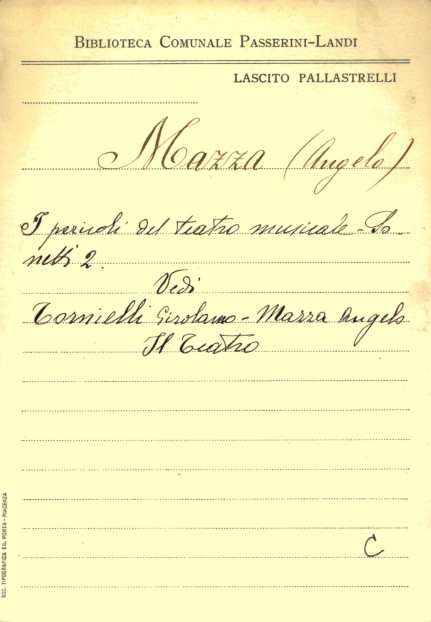 BIBLIOTECA COMUNALE PASSERINI-LANDI
LASCITO PALLASTRELLI
Mazza (Angelo)
I pericoli del teatro musicale - So-
netti 2.
Vedi
Tornielli Girolamo - Mazza Angelo
Il Teatro
C
SOC. TIPOGRAFICA ED. PORTA - PIACENZA